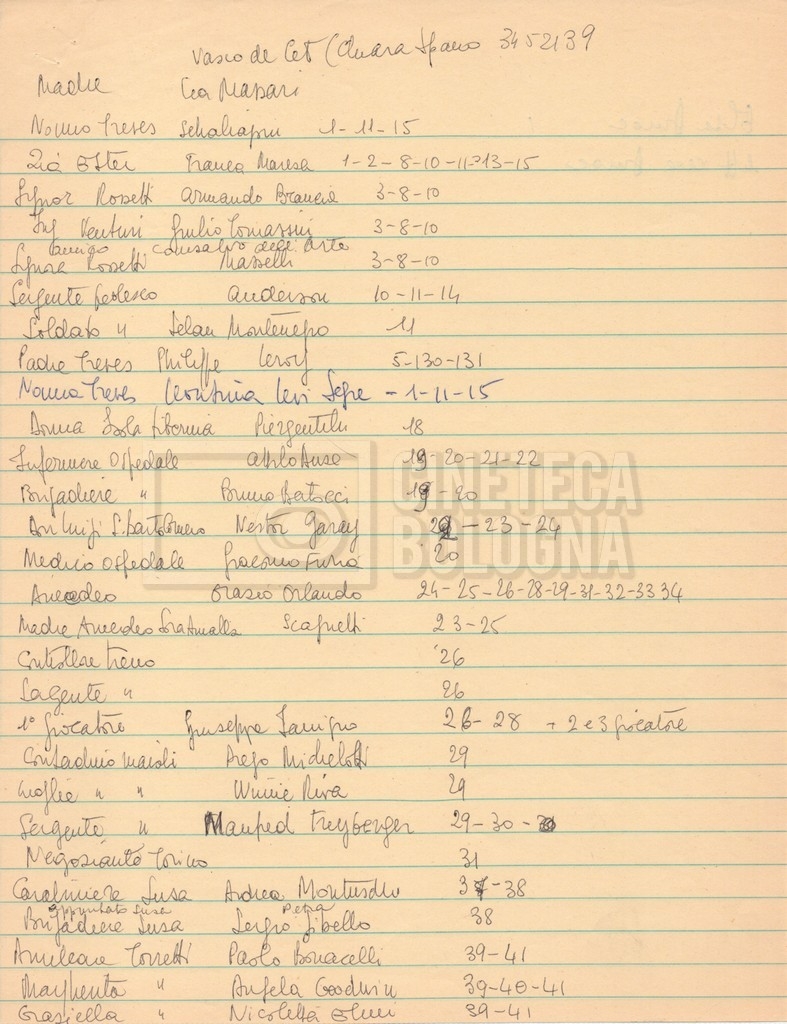 Vasco de Cet (Chiara Spano 3452139
Madre Lea Massari
Nonno Treves Schaliapin 1-11-15
Zia Ester Franca Maresa 1-2-8-10-11-13-15
Signor Rossetti Armando Brancia 3-8-10
Ing Venturi Giulio Tomassini 3-8-10
amico Consalvo dell'Arte
Signora Rossetti Masselli 3-8-10
Sergente tedesco Anderson 10-11-14
Soldato " Selan Montenegro 11
Padre Treves Philippe Leroy 5-130-131
Nonna Treves Leontina Levi Segre - 1-11-15
Donna Isola Tiberina Piergentili 18
Infermiere Ospedale Attilo Duse 19-20-21-22
Brigadiere " Bruno Bertocci 19-20
Don Luigi S. Bartolomeo Nestor Garay 22-23-24
Medico Ospedale Giacomo Furia 20
Amedeo Orazio Orlando 24-25-26-28-29-31-32-33 34
Madre Amedeo Sora Amalia Scagnetti 23-25
Controllore treno 26
Sargente " 26
1° giocatore Giuseppe 26-28 + 2 e 3 giocatore
Contadino maioli Diego Michelotti 29
Moglie " " Winie Riva 29
Sergente " Manfred Freyberger 29-30
Negoziante Torino 31
Carabiniere Susa Andrea 37-38
appuntato Susa Petra
Brigadiere Susa Sergio Gibello 38
Amilcare Torretti Paolo Bonacelli 39-41
Margherita " Angela Goodwin 39-40-41
Graziella " Nicoletta Elmi 39-41
CINETECA
BOLOGNA